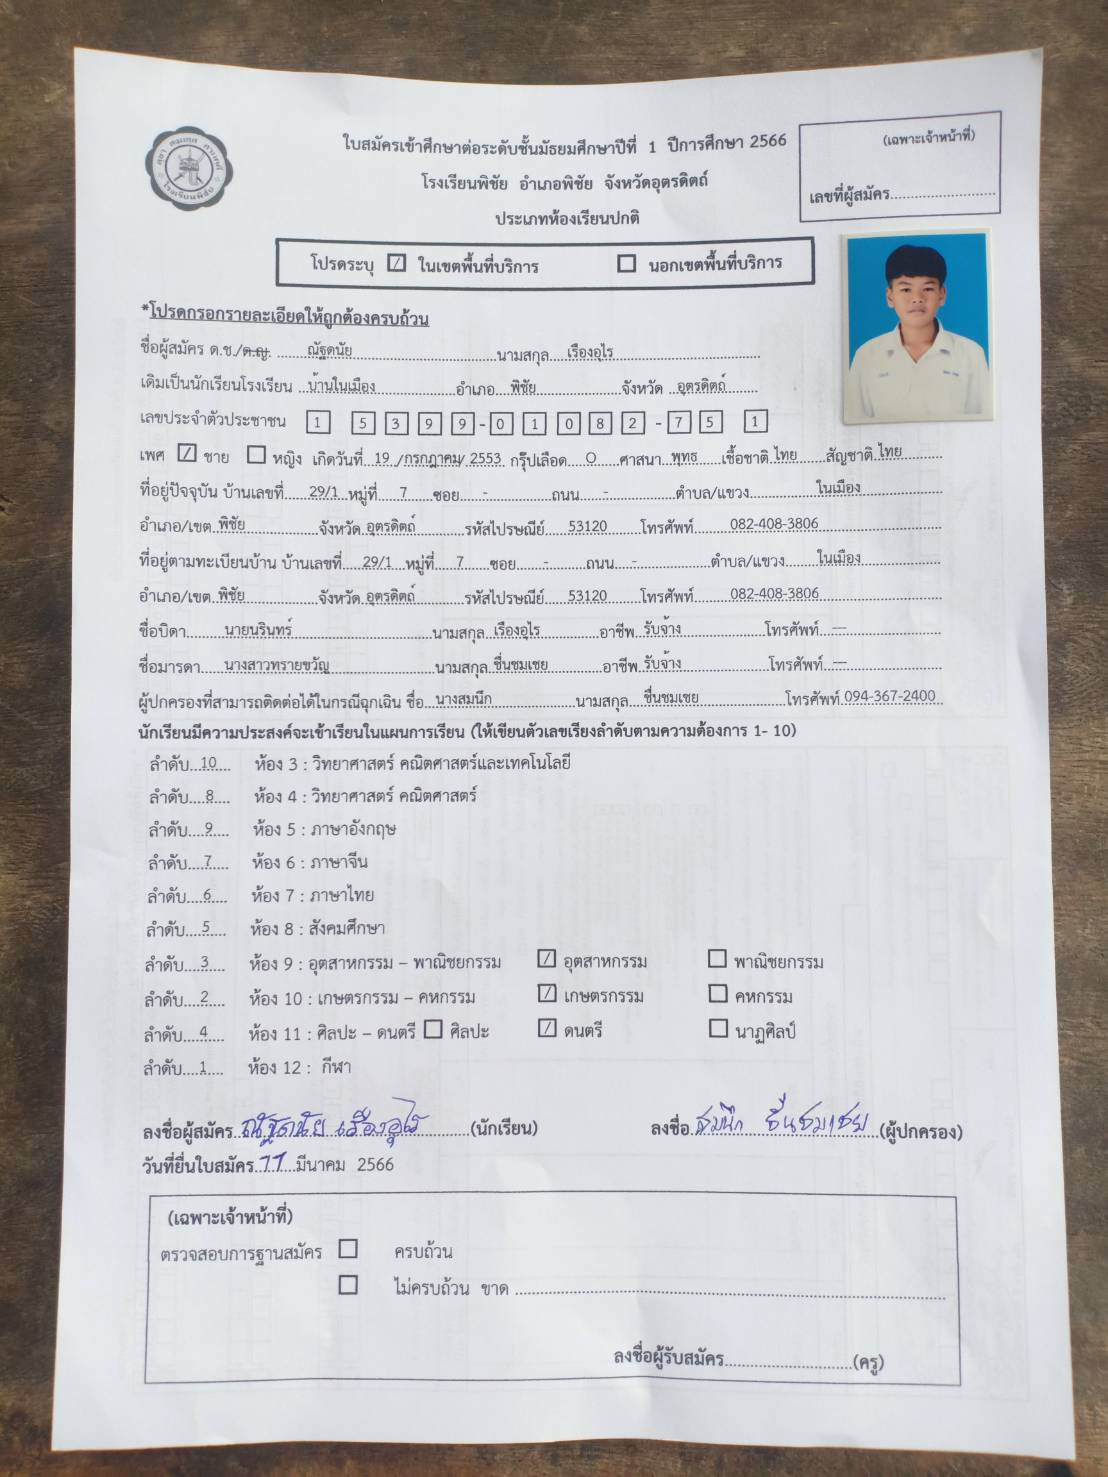 ใบสมัครเข้าศึกษาต่อระดับชั้นมัธยมศึกษาปีที่ 1 ปีการศึกษา 2566
โรงเรียนพิชัย อำเภอพิชัย จังหวัดอุตรดิตถ์
ประเภทห้องเรียนปกติ
(เฉพาะเจ้าหน้าที่)
เลขที่ผู้สมัคร
โปรดระบุ [/] ในเขตพื้นที่บริการ [ ] นอกเขตพื้นที่บริการ
*โปรดกรอกรายละเอียดให้ถูกต้องครบถ้วน
ชื่อผู้สมัคร ด.ช./ด.ญ. ณัฐดนัย นามสกุล เรืองอุไร
เดิมเป็นนักเรียนโรงเรียน บ้านในเมือง อำเภอ พิชัย จังหวัด อุตรดิตถ์
เลขประจำตัวประชาชน 1 5 3 9 9 - 0 1 0 8 2 - 7 5 1
เพศ [/] ชาย [ ] หญิง เกิดวันที่ 19 /กรกฎาคม/ 2553 กรุ๊ปเลือด O ศาสนา พุทธ เชื้อชาติ ไทย สัญชาติ ไทย
ที่อยู่ปัจจุบัน บ้านเลขที่ 29/1 หมู่ที่ 7 ซอย - ถนน - ตำบล/แขวง ในเมือง
อำเภอ/เขต พิชัย จังหวัด อุตรดิตถ์ รหัสไปรษณีย์ 53120 โทรศัพท์ 082-408-3806
ที่อยู่ตามทะเบียนบ้าน บ้านเลขที่ 29/1 หมู่ที่ 7 ซอย - ถนน - ตำบล/แขวง ในเมือง
อำเภอ/เขต พิชัย จังหวัด อุตรดิตถ์ รหัสไปรษณีย์ 53120 โทรศัพท์ 082-408-3806
ชื่อบิดา นายนรินทร์ นามสกุล เรืองอุไร อาชีพ รับจ้าง โทรศัพท์ ---
ชื่อมารดา นางสาวทรายขวัญ นามสกุล ชื่นชมเชย อาชีพ รับจ้าง โทรศัพท์ ---
ผู้ปกครองที่สามารถติดต่อได้ในกรณีฉุกเฉิน ชื่อ นางสมนึก นามสกุล ชื่นชมเชย โทรศัพท์ 094-367-2400
นักเรียนมีความประสงค์จะเข้าเรียนในแผนการเรียน (ให้เขียนตัวเลขเรียงลำดับตามความต้องการ 1- 10)
ลำดับ 10 ห้อง 3 : วิทยาศาสตร์ คณิตศาสตร์และเทคโนโลยี
ลำดับ 8 ห้อง 4 : วิทยาศาสตร์ คณิตศาสตร์
ลำดับ 9 ห้อง 5 : ภาษาอังกฤษ
ลำดับ 7 ห้อง 6 : ภาษาจีน
ลำดับ 6 ห้อง 7 : ภาษาไทย
ลำดับ 5 ห้อง 8 : สังคมศึกษา
ลำดับ 3 ห้อง 9 : อุตสาหกรรม – พาณิชยกรรม [/] อุตสาหกรรม [ ] พาณิชยกรรม
ลำดับ 2 ห้อง 10 : เกษตรกรรม – คหกรรม [/] เกษตรกรรม [ ] คหกรรม
ลำดับ 4 ห้อง 11 : ศิลปะ – ดนตรี [ ] ศิลปะ [/] ดนตรี [ ] นาฏศิลป์
ลำดับ 1 ห้อง 12 : กีฬา
ลงชื่อผู้สมัคร ณัฐดนัย เรืองอุไร (นักเรียน) ลงชื่อ สมนึก ชื่นชมเชย (ผู้ปกครอง)
วันที่ยื่นใบสมัคร 11 มีนาคม 2566
(เฉพาะเจ้าหน้าที่)
ตรวจสอบการฐานสมัคร [ ] ครบถ้วน
[ ] ไม่ครบถ้วน ขาด
ลงชื่อผู้รับสมัคร (ครู)